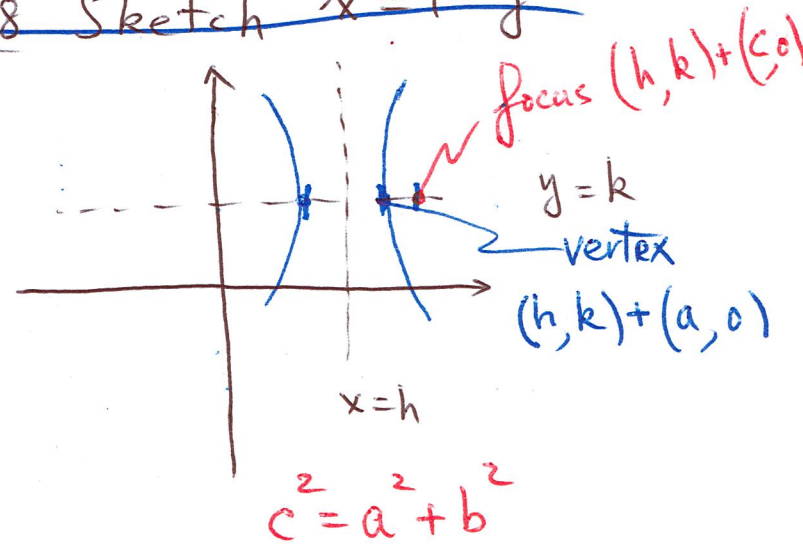 8 Sketch
focus (h,k)+(c,0)
y=k
vertex
(h,k)+(a,0)
x=h
c²=a²+b²